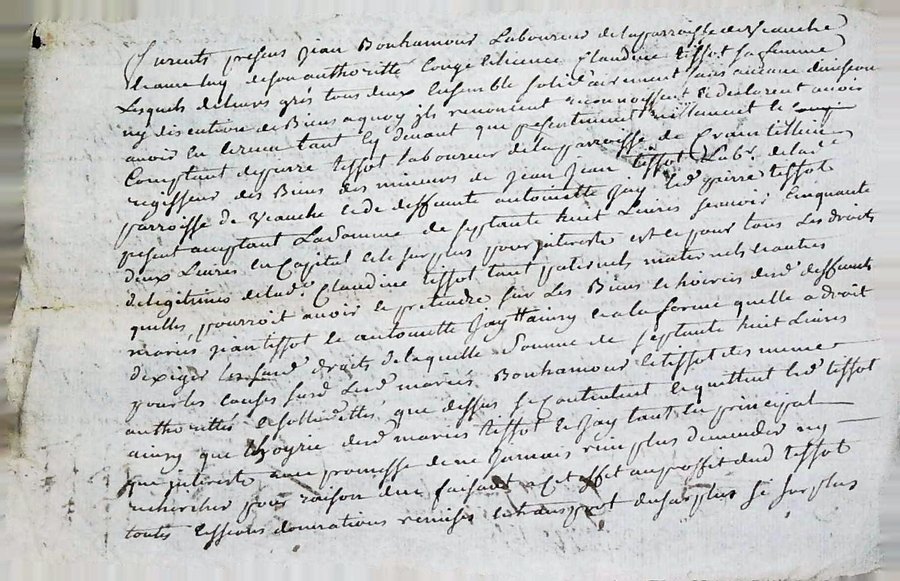 Furents présens Jean Bonhamour Laboureur de la parroisse de Veauche
de son authoritté Congé licence Claudine tissot sa femme
Lesquels de leurs grés tous deux Ensemble solidairement sans aucune division
ny discution de Biens a quoy ils renoncent reconnoissent & declarent avoir
avoir eu et receu tant cy devant que presentement
Comptant de pierre tissot laboureur de la parroisse de Craintilleu
regisseur des Biens des mineurs de Jean Jean tissot Labr. de lade
parroisse de Veauche et de deffunte antoinette Jay led pierre tissot
présent acceptant La somme de septante huit Livres scavoir Cinquante
deux Livres en Capital et le surplus pour interests et ce pour tous Les droits
de legitimes de lade Claudine tissot tant paternels maternels et autres
quelle pourroit avoir et pretendre sur Les Biens et hoiries desd deffunts
mariés Jean tissot et antoinette Jay et a la forme quelle a droit
dexiger lesd droits de laquelle Somme de septante huit Livres
pour les causes susd Lesd mariés Bonhamour et tissot des mesmes
authorittés et sollidittés que dessus se contentent et quittent led tissot
ainsy que lhoyrie desd mariés tissot et Jay tant en principal
que interests avec promesse de ne jamais rien plus demander ny
rechercher pour raison dece faisant a cet effet au proffit dud tissot
toutes Cessions donnations remises et transport du surplus si surplus